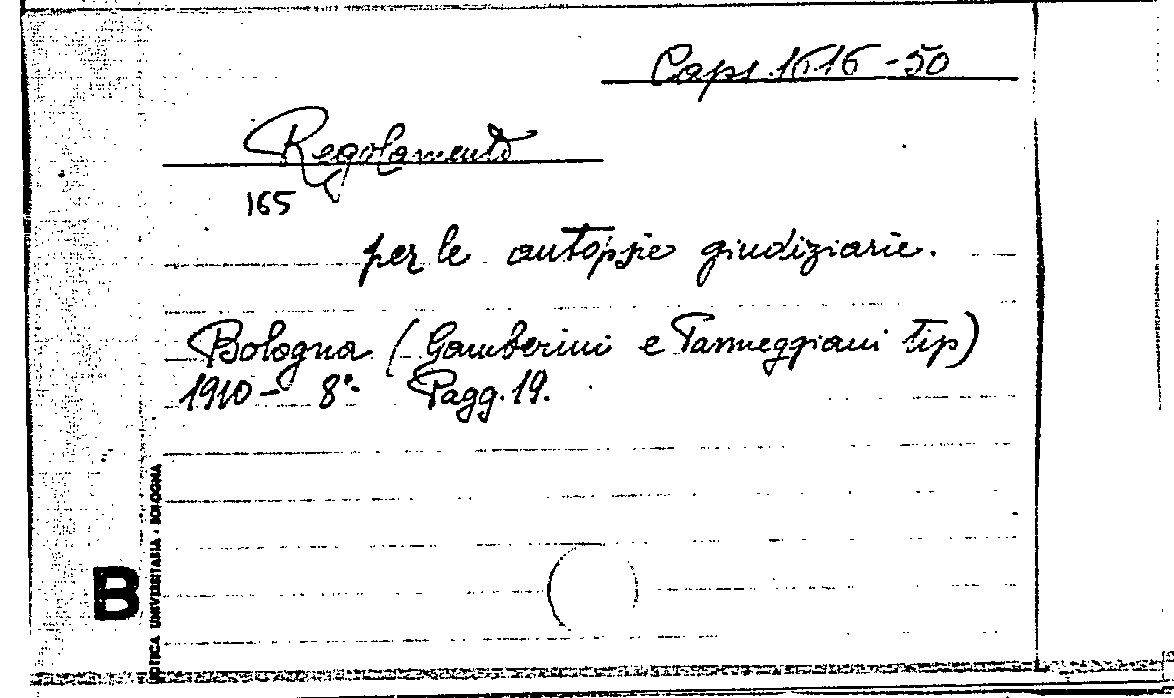 Caps. 1616-50
Regolamento
165
per le autopsie giudiziarie.
Bologna (Gamberini e Parmeggiani tip)
1910 - 8°- Pagg. 19.
B
UNIVERSITARIA - BOLOGNA